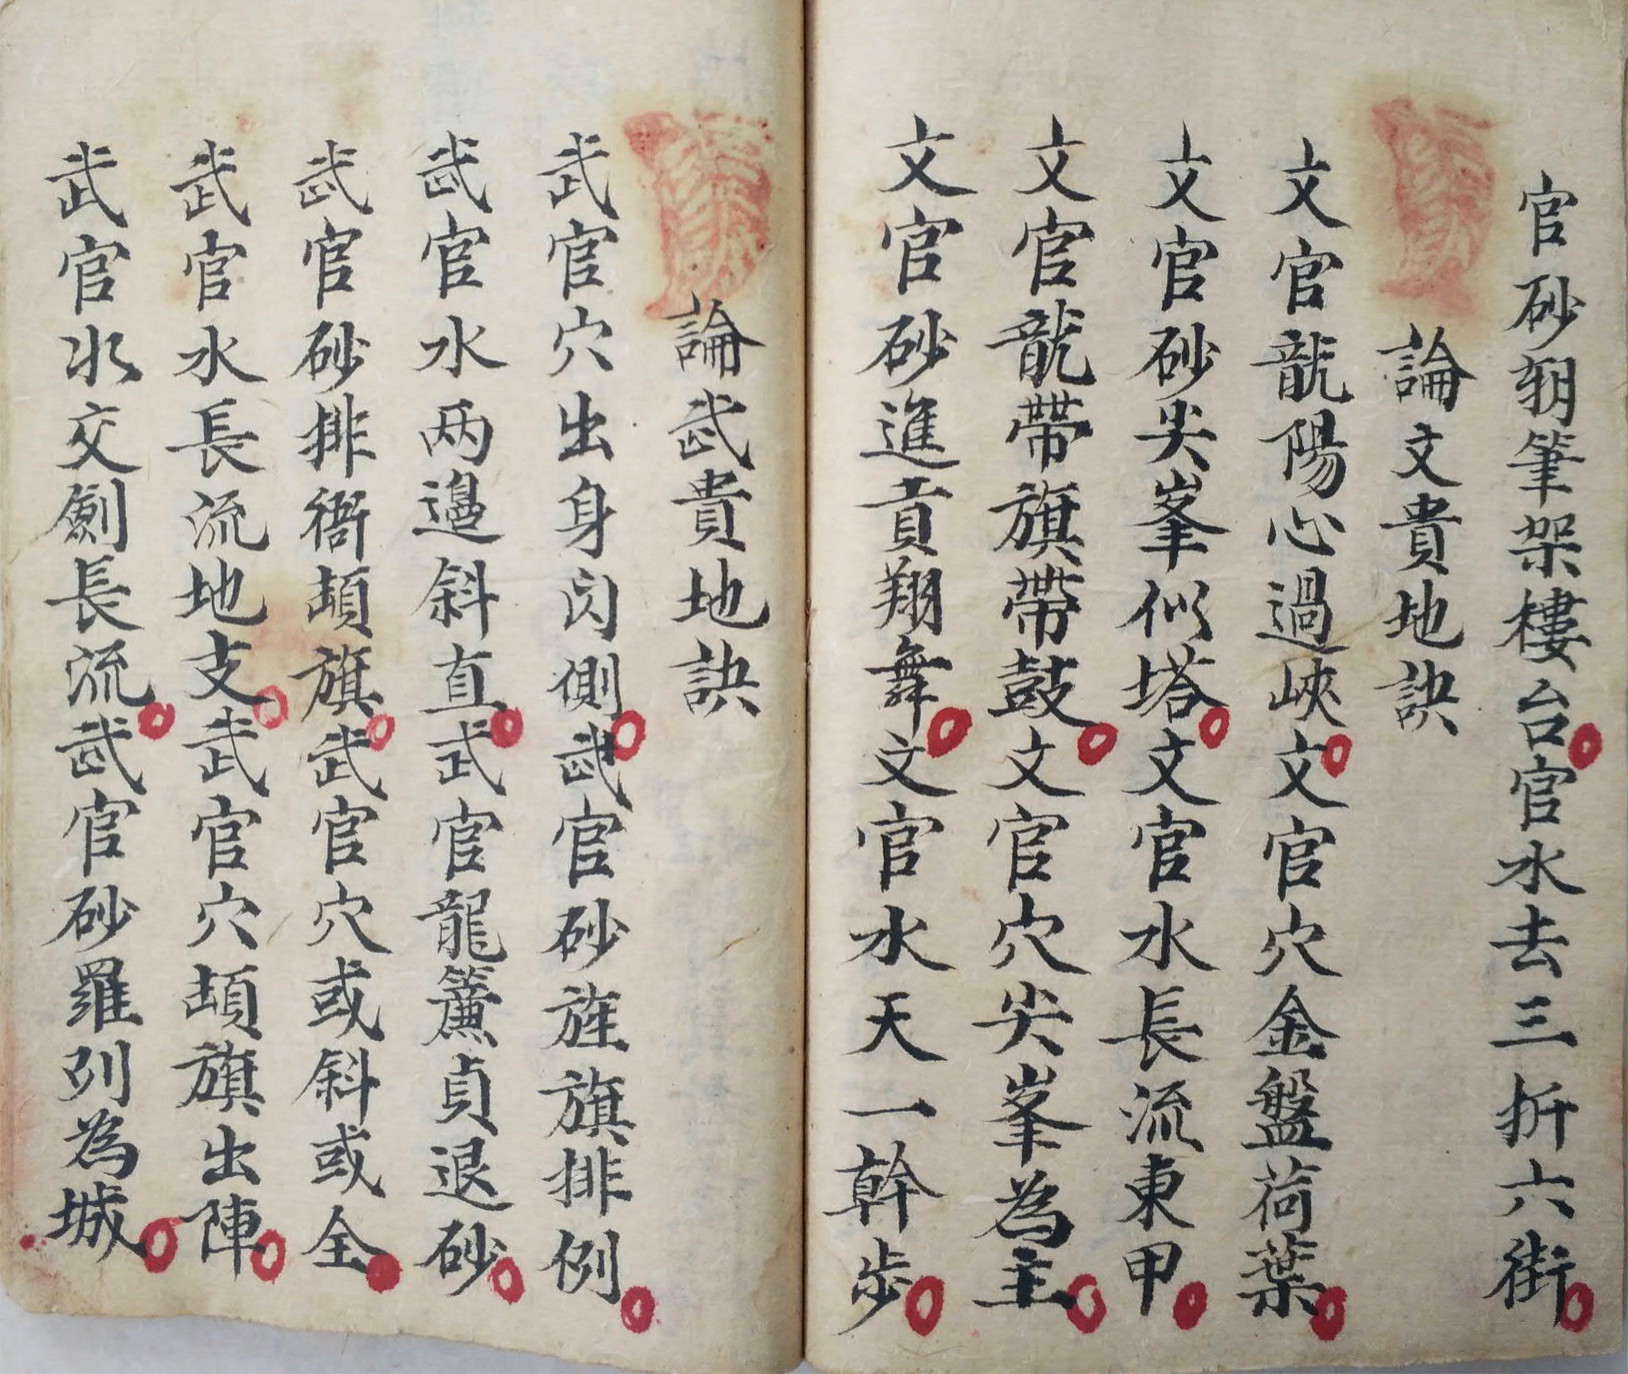 官砂朝筆架樓台官水去三折六街
論文貴地訣
文官龍陽心過峽文官穴金盤荷葉
文官砂尖峯似塔文官水長流東甲
文官龍帶旗帶鼓文官穴尖峯為主
文官砂進貢翔舞文官水天一幹步
論武貴地訣
武官穴出身閃側武官砂旌旗排例
武官水两邉斜直武官龍簾貞退砂
武官砂排衙頓旗武官穴或斜或仝
武官水長流地支武官穴頓旗出陣
武官水交劍長流武官砂羅列為城